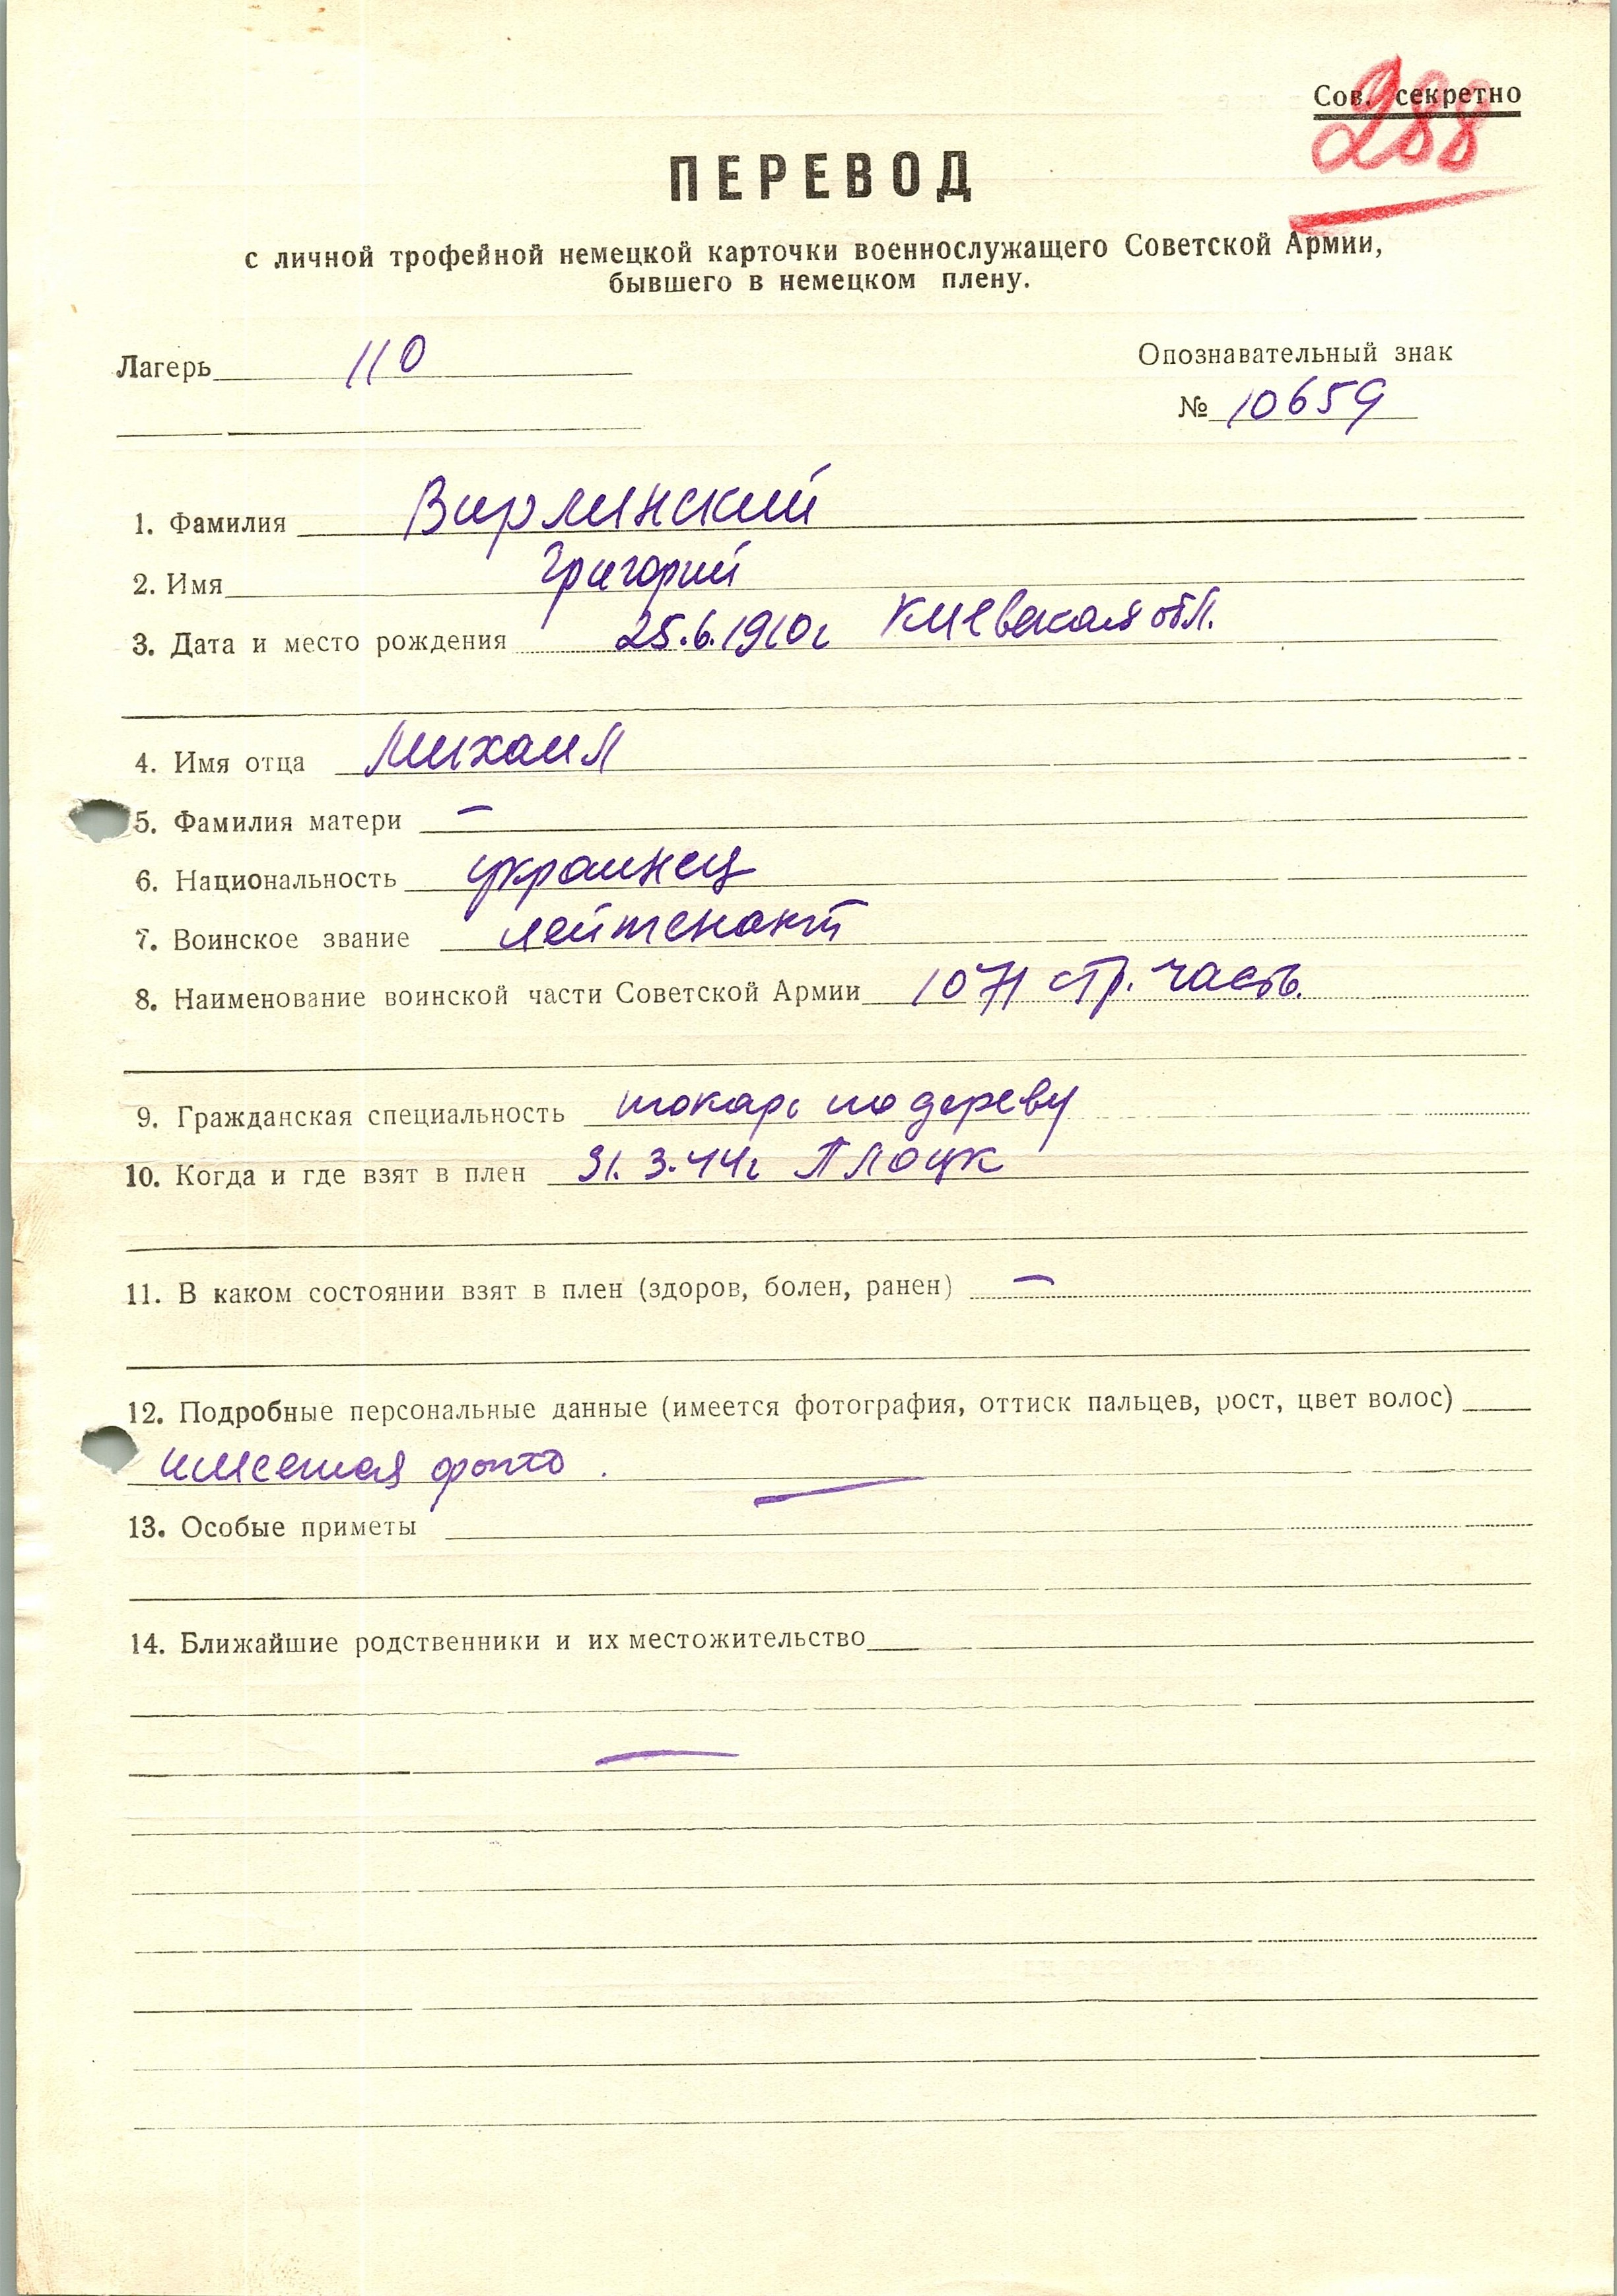 Сов. секретно
288
ПЕРЕВОД
с личной трофейной немецкой карточки военнослужащего Советской Армии,
бывшего в немецком плену.
Лагерь 110
Опознавательный знак
№ 10659
1. Фамилия Вирлинский
2. Имя Григорий
3. Дата и место рождения 25.6.1910г Киевская обл.
4. Имя отца Михаил
5. Фамилия матери —
6. Национальность украинец
7. Воинское звание лейтенант
8. Наименование воинской части Советской Армии 1071 стр. часть.
9. Гражданская специальность токарь по дереву
10. Когда и где взят в плен 31.3.44г Плоцк
11. В каком состоянии взят в плен (здоров, болен, ранен) —
12. Подробные персональные данные (имеется фотография, оттиск пальцев, рост, цвет волос)
имеется фото.
13. Особые приметы —
14. Ближайшие родственники и их местожительство
—